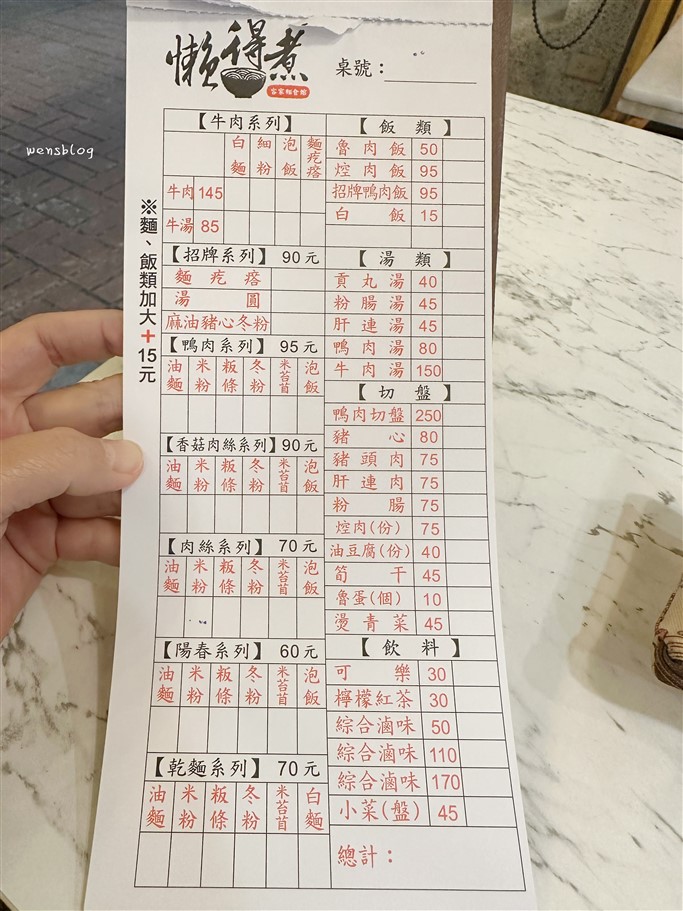 懶得煮
客家麵食館
桌號：
wensblog
※麵、飯類加大+15元
【牛肉系列】
白麵 細粉 泡飯 麵疙瘩
牛肉 145
牛湯 85
【招牌系列】 90元
麵疙瘩
湯圓
麻油豬心冬粉
【鴨肉系列】 95元
油麵 米粉 粄條 冬粉 米苔苜 泡飯
【香菇肉絲系列】90元
油麵 米粉 粄條 冬粉 米苔苜 泡飯
【肉絲系列】 70元
油麵 米粉 粄條 冬粉 米苔苜 泡飯
【陽春系列】 60元
油麵 米粉 粄條 冬粉 米苔苜 泡飯
【乾麵系列】 70元
油麵 米粉 粄條 冬粉 米苔苜 白麵
【飯類】
魯肉飯 50
焢肉飯 95
招牌鴨肉飯 95
白飯 15
【湯類】
貢丸湯 40
粉腸湯 45
肝連湯 45
鴨肉湯 80
牛肉湯 150
【切盤】
鴨肉切盤 250
豬心 80
豬頭肉 75
肝連肉 75
粉腸 75
焢肉(份) 75
油豆腐(份) 40
筍干 45
魯蛋(個) 10
燙青菜 45
【飲料】
可樂 30
檸檬紅茶 30
綜合滷味 50
綜合滷味 110
綜合滷味 170
小菜(盤) 45
總計：